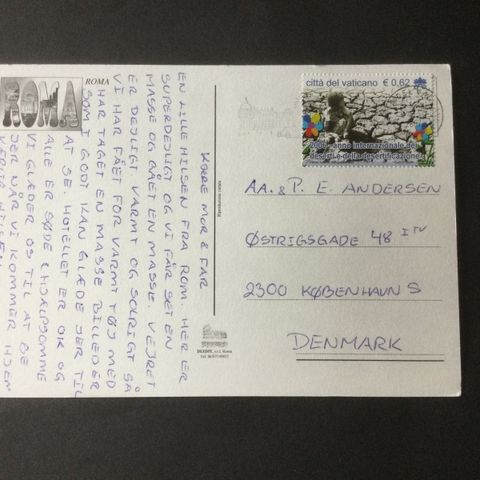 ROMA
ROMA
KÆRE MOR & FAR
EN LILLE HILSEN FRA ROM. HER ER
SUPERDEJLIGT OG VI FÅR SET EN
MASSE OG GÅET EN MASSE. VEJRET
ER DEJLIGT VARMT OG SOLRIGT SÅ
VI HAR FÅET FOR VARMT TØJ MED
HAR TAGET EN MASSE BILLEDER
SOM I GODT KAN GLÆDE JER TIL
AT SE. HOTELLET ER OK OG
ALLE ER SØDE & HJÆLPSOMME
VI GLÆDER OS TIL AT SE
JER NÅR VI KOMMER HJEM
città del vaticano € 0,62
2006 - anno internazionale dei
deserti e della desertificazione
AA. & P. E. ANDERSEN
ØSTRIGSGADE 48 I TV
2300 KØBENHAVN S
DENMARK
Roma